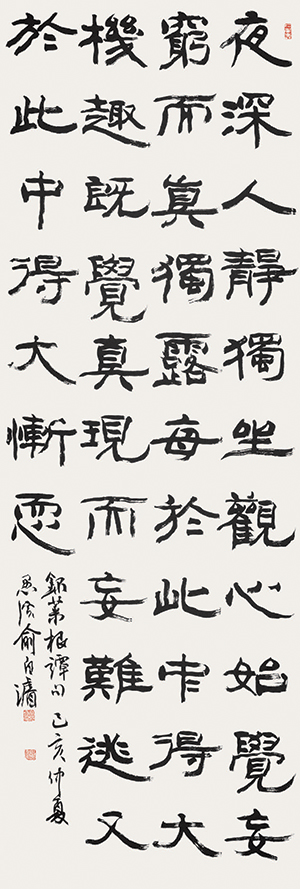 夜深人靜獨坐觀心始覺妄
窮而真獨露每於此中得大
機趣既覺真現而妄難逃又
於此中得大慚恧
錄菜根譚句己亥仲夏
俞